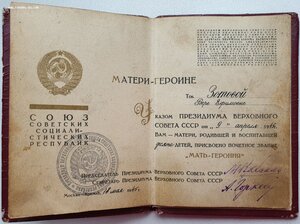 СОЮЗ
СОВЕТСКИХ
СОЦИАЛИ-
СТИЧЕСКИХ
РЕСПУБЛИК
МАТЕРИ-ГЕРОИНЕ
Тов. Зотовой
Вере Ефимовне
УКАЗОМ ПРЕЗИДИУМА ВЕРХОВНОГО
СОВЕТА СССР от апреля
ВАМ — МАТЕРИ, РОДИВШЕЙ И ВОСПИТАВШЕЙ
ДЕТЕЙ, ПРИСВОЕНО ПОЧЕТНОЕ ЗВАНИЕ
"МАТЬ-ГЕРОИНЯ"
Председатель Президиума Верховного Совета СССР
Секретарь Президиума Верховного Совета СССР
Москва-Кремль